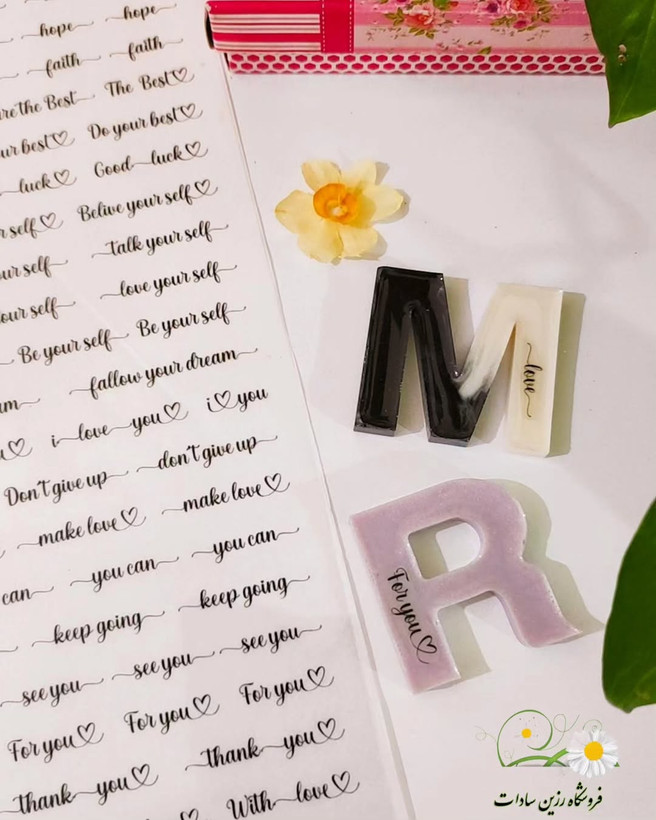 hope hope
faith faith
are the Best The Best
ur best Do your best
luck Good luck
r self Belive your self
ur self talk your self
our self love your self
Be your self Be your self
am fallow your dream
u i love you i you
Don't give up don't give up
make love make love
can you can you can
keep going keep going
see you see you see you
For you For you For you
thank you thank you
With love
love
For you
فروشگاه رزین سادات